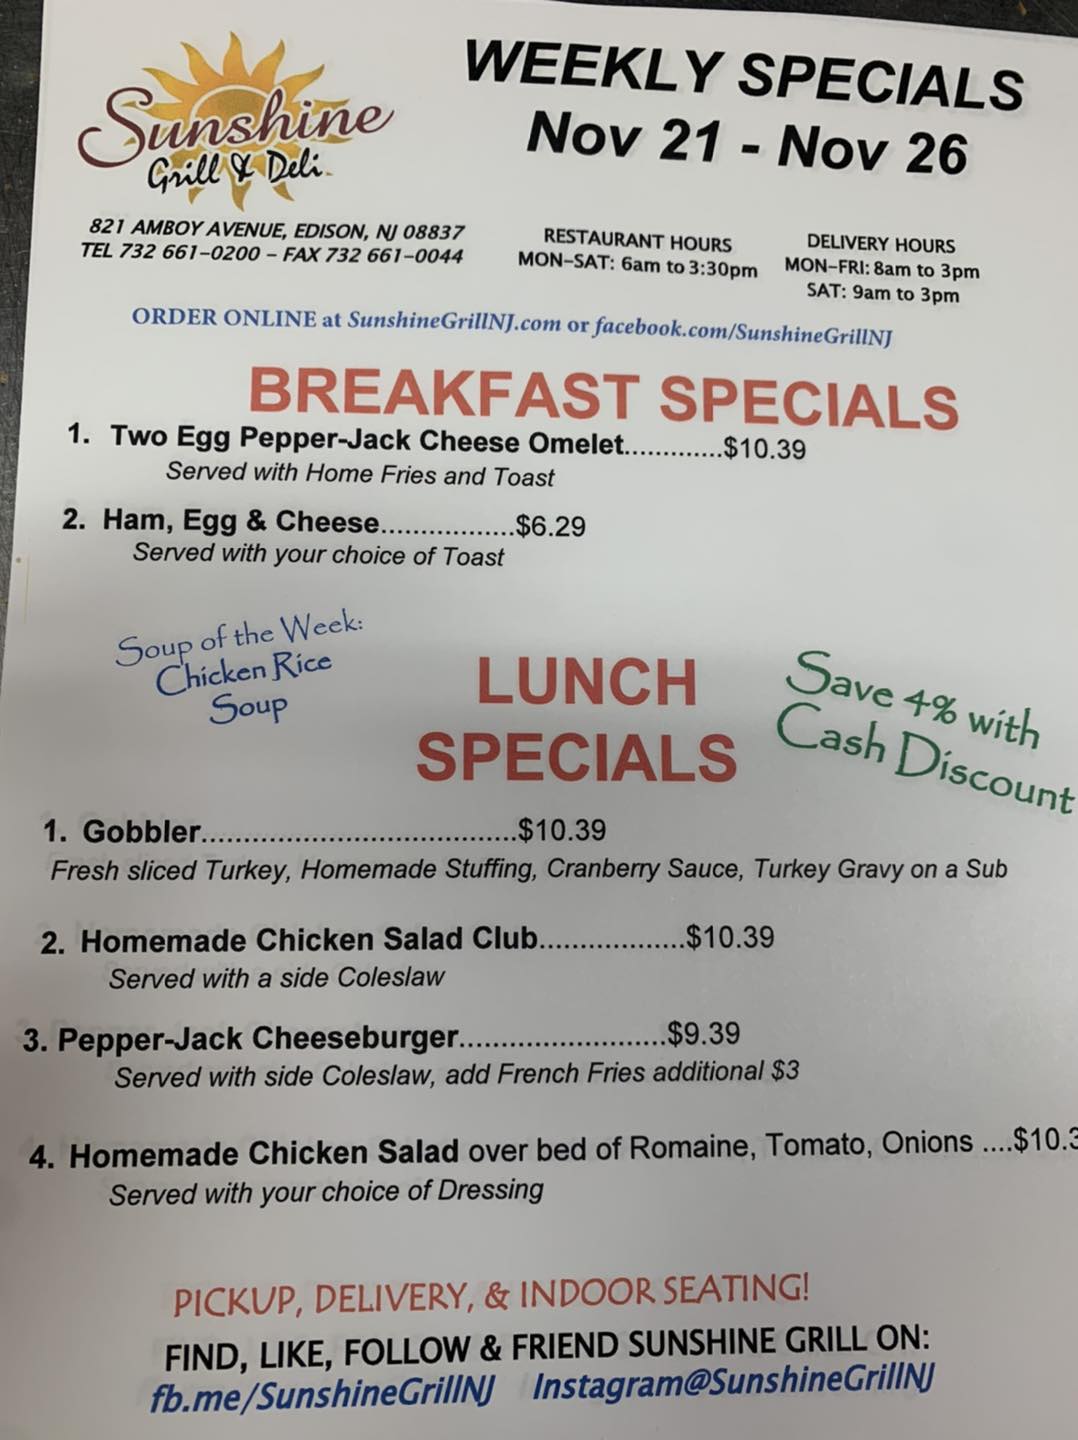 Sunshine
Grill & Deli
WEEKLY SPECIALS
Nov 21 - Nov 26
821 AMBOY AVENUE, EDISON, NJ 08837
TEL 732 661-0200 - FAX 732 661-0044
RESTAURANT HOURS
MON-SAT: 6am to 3:30pm
DELIVERY HOURS
MON-FRI: 8am to 3pm
SAT: 9am to 3pm
ORDER ONLINE at SunshineGrillNJ.com or facebook.com/SunshineGrillNJ
BREAKFAST SPECIALS
1. Two Egg Pepper-Jack Cheese Omelet.............$10.39
Served with Home Fries and Toast
2. Ham, Egg & Cheese.................$6.29
Served with your choice of Toast
Soup of the Week:
Chicken Rice
Soup
LUNCH
SPECIALS
Save 4% with
Cash Discount
1. Gobbler.......................................$10.39
Fresh sliced Turkey, Homemade Stuffing, Cranberry Sauce, Turkey Gravy on a Sub
2. Homemade Chicken Salad Club..................$10.39
Served with a side Coleslaw
3. Pepper-Jack Cheeseburger.........................$9.39
Served with side Coleslaw, add French Fries additional $3
4. Homemade Chicken Salad over bed of Romaine, Tomato, Onions ....$10.3
Served with your choice of Dressing
PICKUP, DELIVERY, & INDOOR SEATING!
FIND, LIKE, FOLLOW & FRIEND SUNSHINE GRILL ON:
fb.me/SunshineGrillNJ Instagram@SunshineGrillNJ